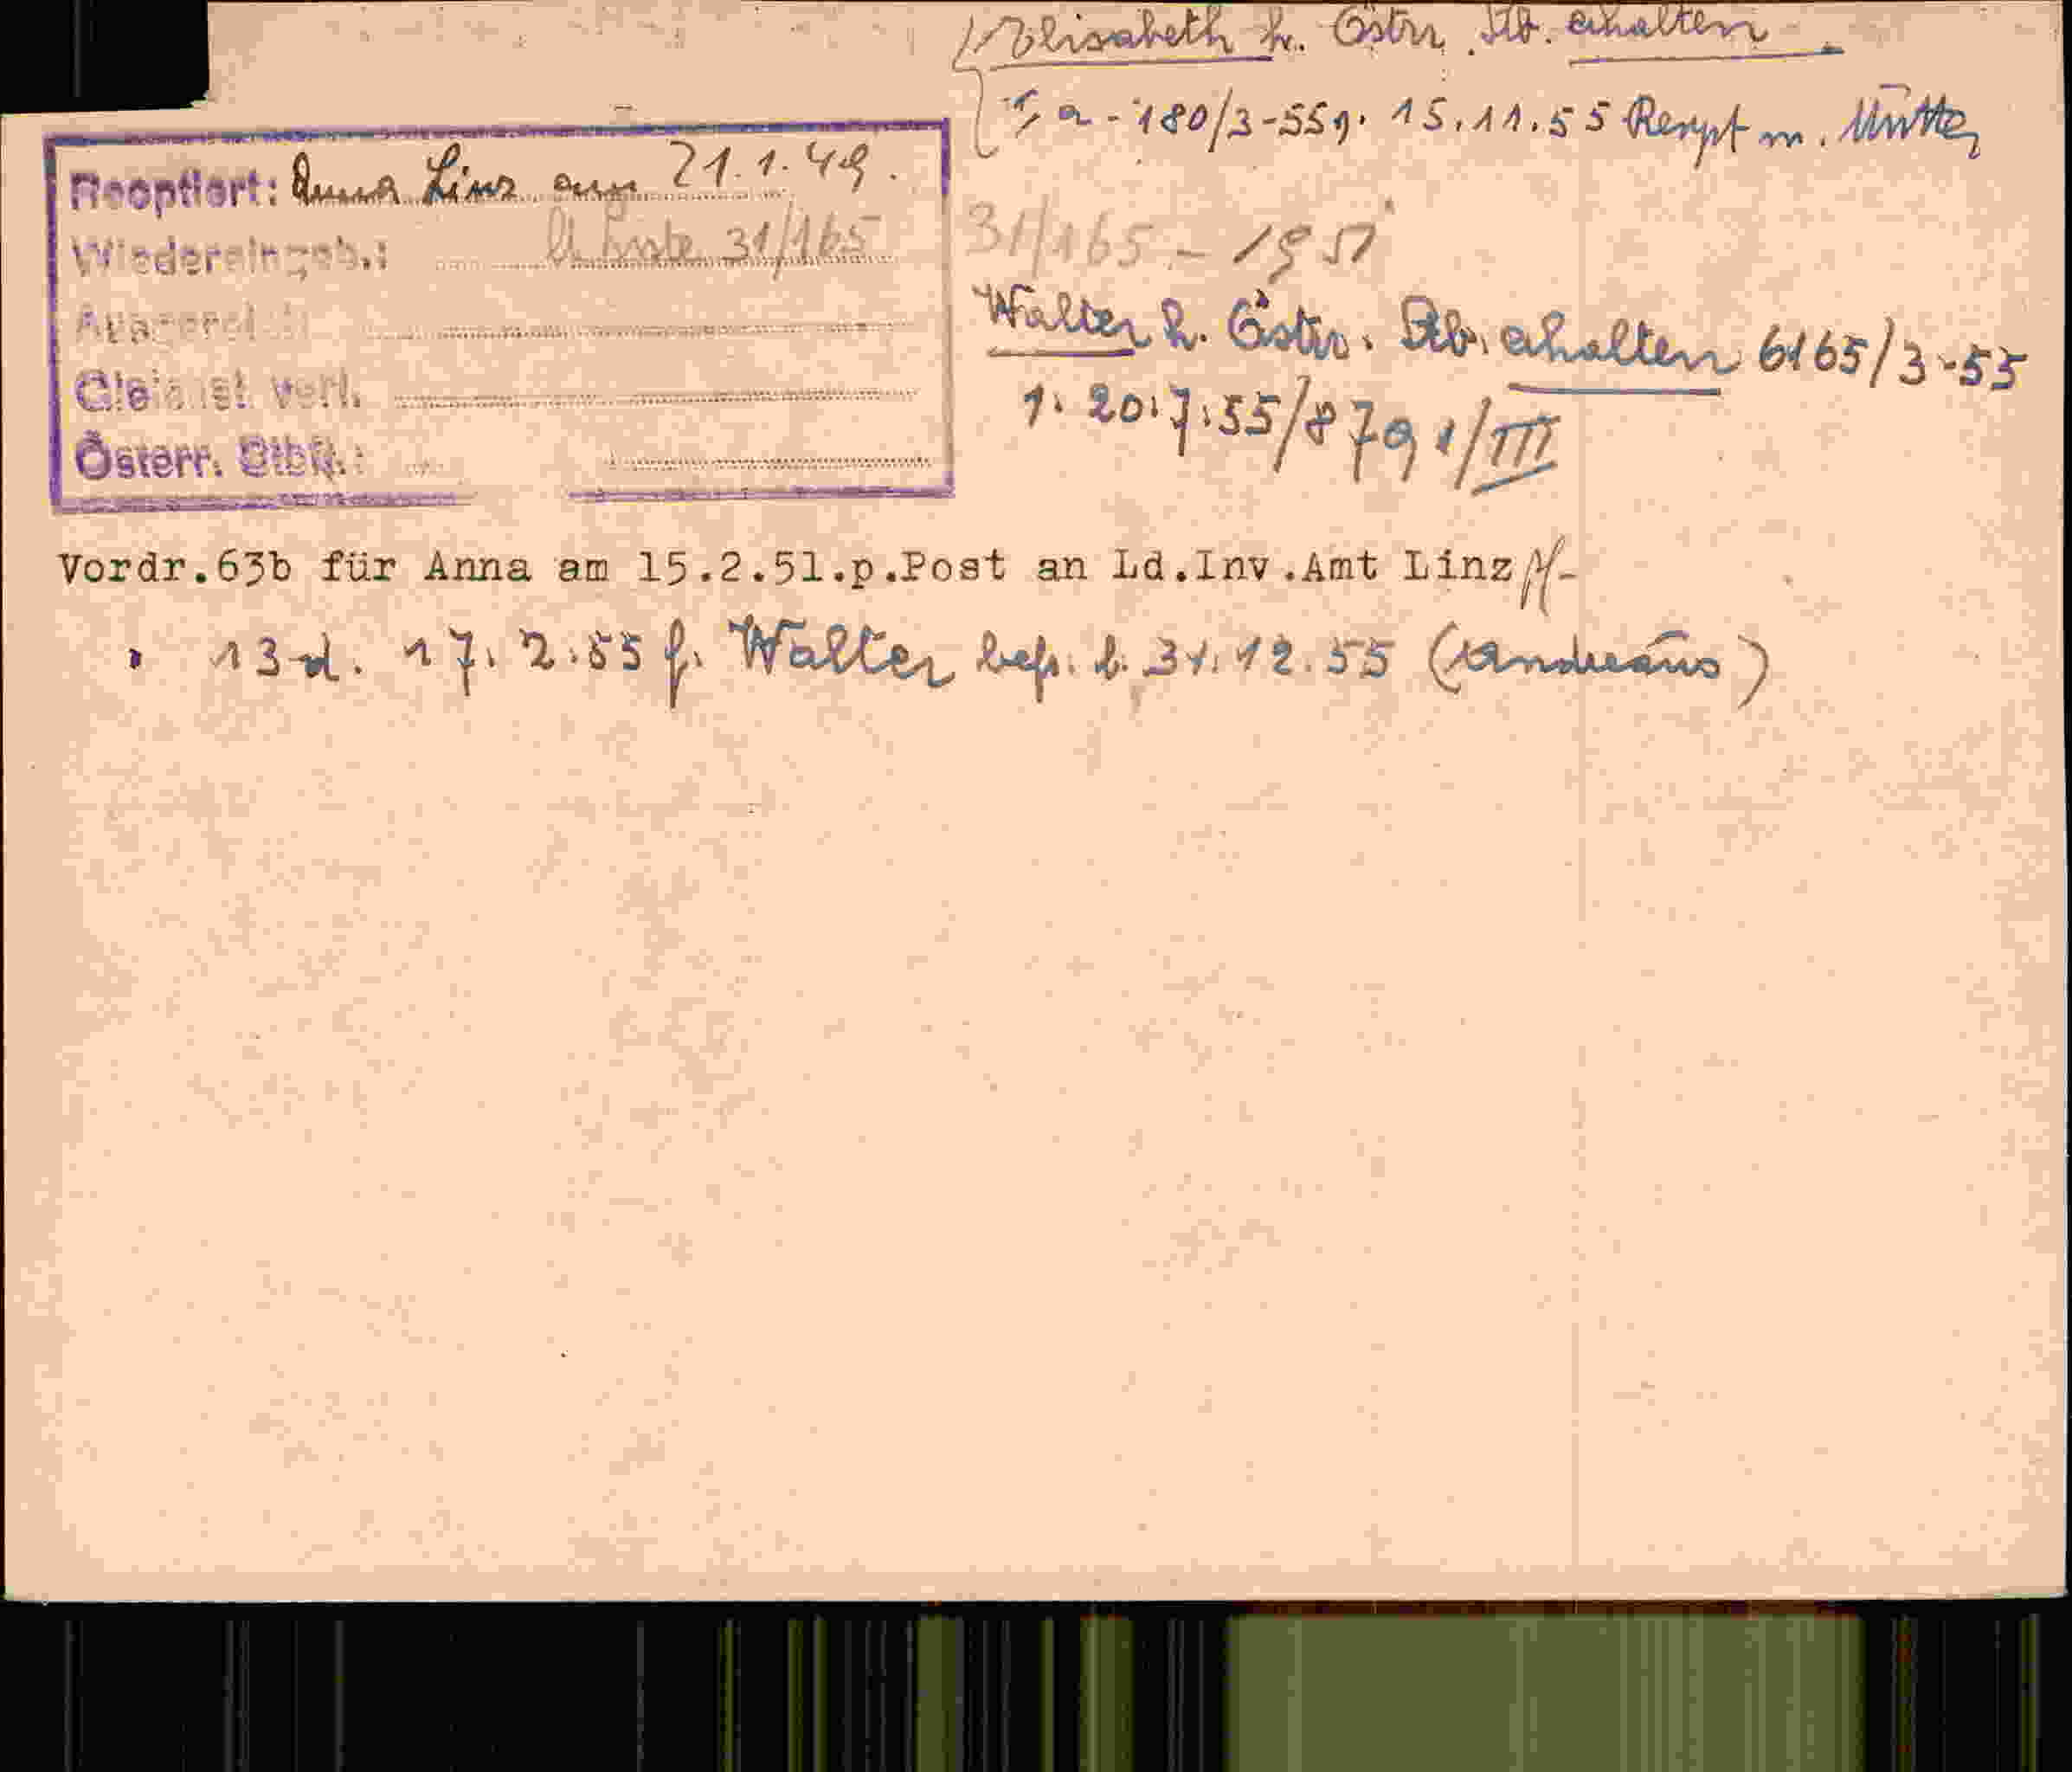 Elisabeth h. Östr. Stb. erhalten
a - 180/3-55 g. 15.11.55 Reopt m. Mutter
Reoptiert: Anna Linz am 21.1.49.
Wiedereingeb.: Liste 31/165
31/165 - 1951
Walter h. Östr. Stb. erhalten 6165/3-55
1. 20.7.55/8791/III
Gleichst. verl.
Österr. Stbg.:
Vordr.63b für Anna am 15.2.51.p.Post an Ld.Inv.Amt Linz
" 13 d. 17.2.55 f. Walter bef. b. 31.12.55 (Andreaus)